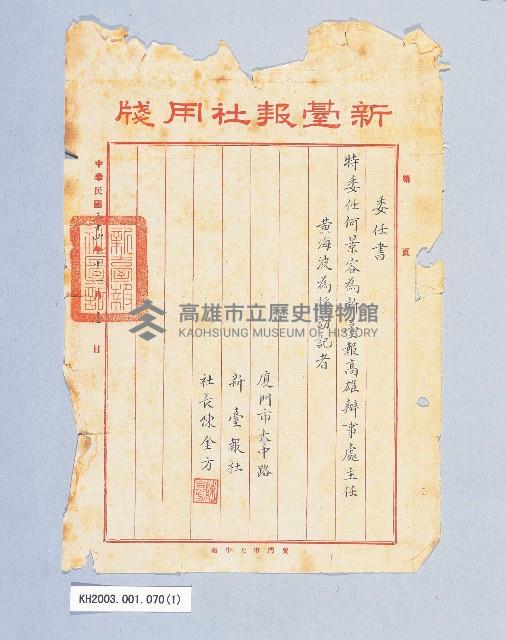 新臺報社用牋
第 頁
委任書
特委任何景容為新臺報高雄辦事處主任
黃海波為採訪記者
廈門市大中路
新臺報社
社長陳全方
中華民國三十四年十 月 日
廈門市大中路
高雄市立歷史博物館
KAOHSIUNG MUSEUM OF HISTORY
KH2003.001.070(1)